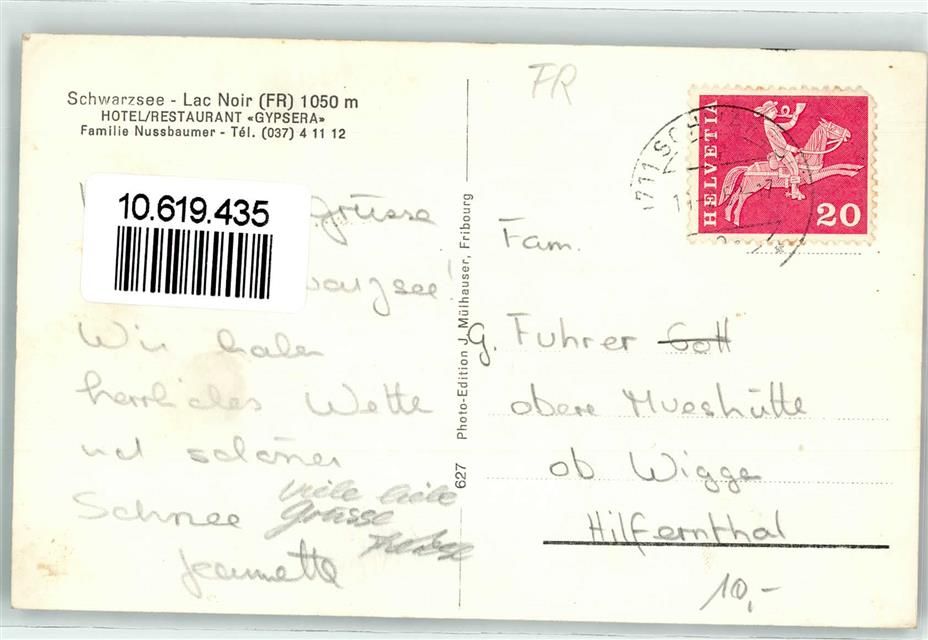 Schwarzsee - Lac Noir (FR) 1050 m
HOTEL/RESTAURANT «GYPSERA»
Familie Nussbaumer - Tél. (037) 4 11 12
10.619.435
Grüsse
warzsee!
Wir haben
herrliches Wette
und schönen
Schnee
viele liebe
Grüsse
Jeannette
627 Photo-Edition J. Mülhauser, Fribourg
FR
1711 SCHWARZ
HELVETIA
20
Fam.
G. Fuhrer Gott
obere Mueshütte
ob Wigge
Hilfernthal
10,-